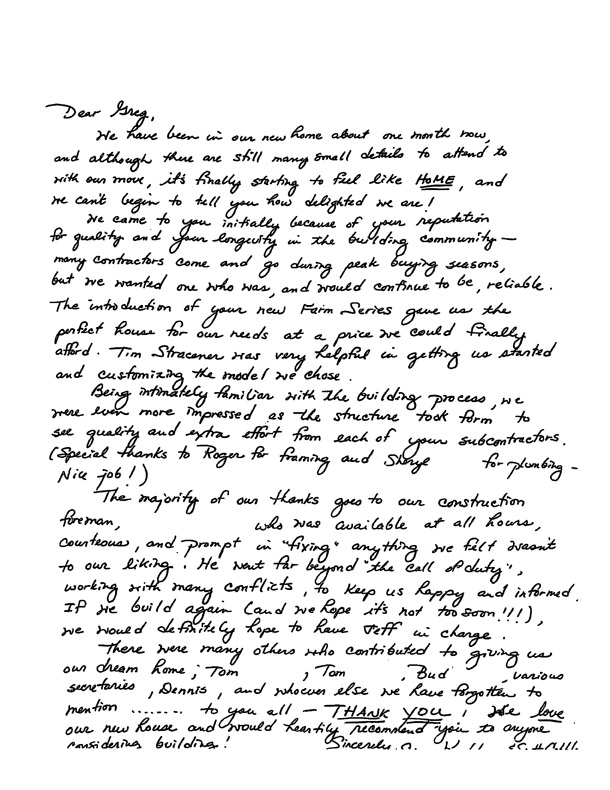 Dear Greg,
We have been in our new home about one month now,
and although there are still many small details to attend to
with our move, it's finally starting to feel like HOME, and
we can't begin to tell you how delighted we are!
We came to you initially because of your reputation
for quality and your longevity in the building community —
many contractors come and go during peak buying seasons,
but we wanted one who was, and would continue to be, reliable.
The introduction of your new Farm Series gave us the
perfect house for our needs at a price we could finally
afford. Tim Stracener was very helpful in getting us started
and customizing the model we chose.
Being intimately familiar with the building process, we
were even more impressed as the structure took form to
see quality and extra effort from each of your subcontractors.
(Special thanks to Roger for framing and Sheryl for plumbing -
Nice job!)
The majority of our thanks goes to our construction
foreman, who was available at all hours,
courteous, and prompt in "fixing" anything we felt wasn't
to our liking. He went far beyond "the call of duty",
working with many conflicts, to keep us happy and informed.
If we build again (and we hope it's not too soon!!!),
we would definitely hope to have Jeff in charge.
There were many others who contributed to giving us
our dream home; Tom , Tom , Bud , various
secretaries, Dennis, and whoever else we have forgotten to
mention ........ to you all — THANK YOU! We love
our new house and would heartily recommend you to anyone
considering building! Sincerely,